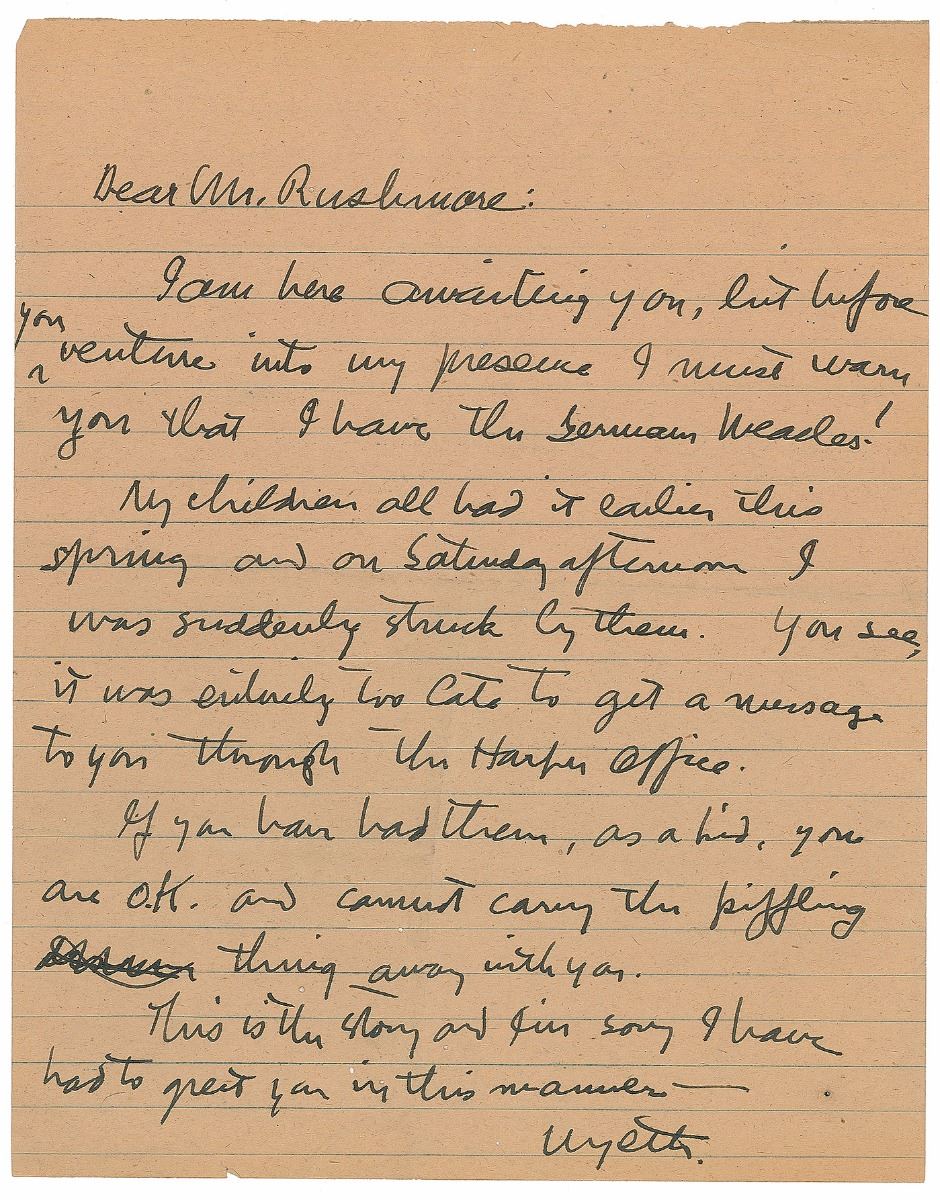 Dear Mr. Rushmore:
I am here awaiting you, but before
you
venture into my presence I must warn
you that I have the German Measles!
My children all had it earlier this
spring and on Saturday afternoon I
was suddenly struck by them. You see,
it was entirely too late to get a message
to you through the Harper Office.
If you have had them, as a kid, you
are O.K. and cannot carry the piffling
thing away with you.
This is the story and I'm sorry I have
had to greet you in this manner—
Wyeth.